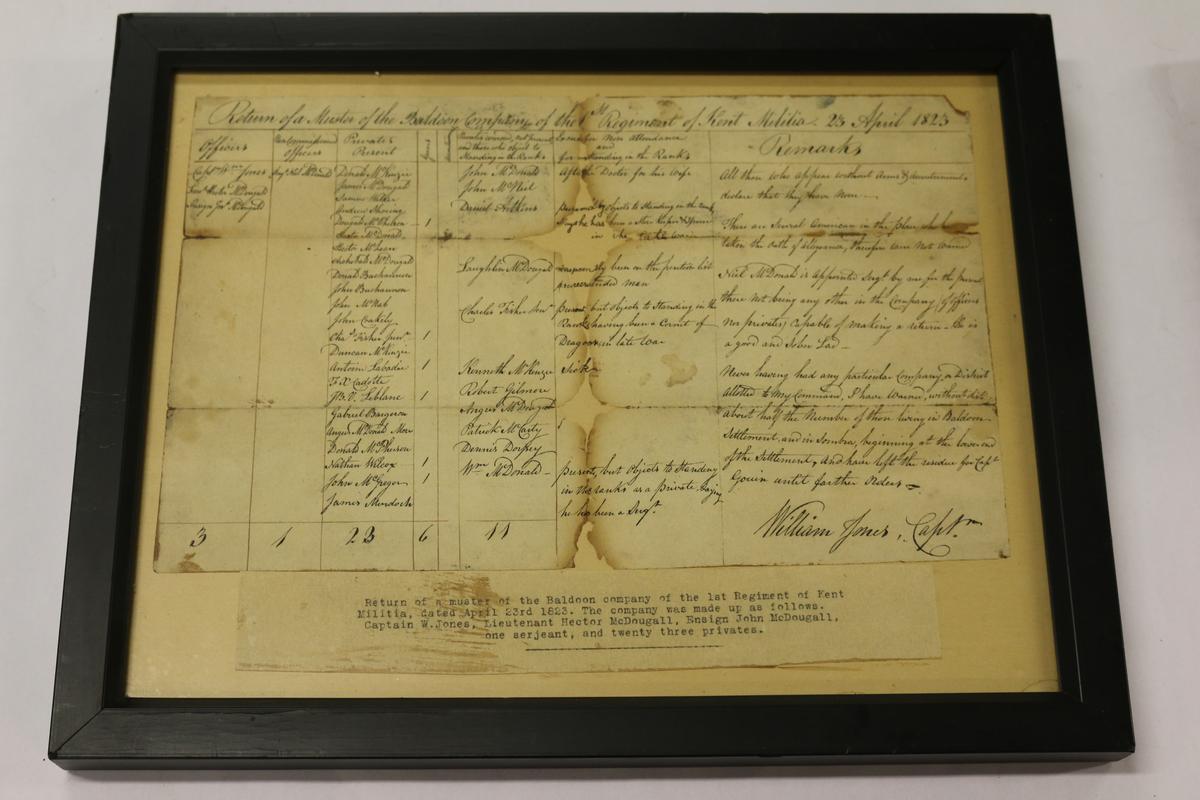 Return of a Muster of the Baldoon Company of the 1st Regiment of Kent Militia. 23 April 1823
Officers
Capt Wm Jones
Lieut Hector McDougald
Ensign Jno McDougald
3
Non Commissioned
Officers
Sergt Neil McDonald
1
Privates
Present
Donald McKenzie
James McDougal
James
Andrew
Daniel McPherson
Hector McDonald
Hector McLean
Archibald McDougal
Donald Buchannon
John Buchannon
John McNab
John Coakely
Chas Fisher Junr
Duncan McKenzie
Antoine Labadie
F. X. Cadotte
J.B. V. Leblanc
Gabriel Bargeron
Angus McDonald More
Donald McPherson
Nathan Wilcox
John McGregor
James Murdoch
23
1
1
1
1
1
1
6
Privates warned, not present
and those who object to
Standing in the Ranks
John McDonald
John McNeil
Daniel Atkins
Laughlin McDougal
Charles Fisher Senr
Kenneth McKenzie
Robert Gilmore
Angus McDougal
Patrick McCarty
Dennis Dorsey
Wm McDonald
11
for Non Attendance
and
for Standing in the Ranks
After the Doctor for his Wife
objects to Standing in the rank
Says he has been a
in the late war
been on the pention list
man
Present but objects to Standing in the
Ranks having been a Cornet of
Dragoons in late War
Sick
present, but objects to Standing
in the ranks as a private. Saying
he has been a Sergt.
Remarks
All those who appear without Arms & Accoutrements
declare that they have None
There are Several Americans in the place who have
taken the Oath of allegiance, therefore were not warned
Neil McDonald is appointed Sergt by me for the present
there not being any other in the Company (of Officers
nor privates) Capable of making a return - He is
a good and Sober Lad -
Never having had any particular Company or District
allotted to My Command, I have Warned, without dist.
about half the Number of those living in Baldoon
Settlement, and in Sombra, beginning at the lower end
of the Settlement, and have left the residue for Capt
Gouin until farther Orders
William Jones, Captn
Return of a muster of the Baldoon company of the 1st Regiment of Kent
Militia, dated April 23rd 1823. The company was made up as follows.
Captain W.Jones, Lieutenant Hector McDougall, Ensign John McDougall,
one serjeant, and twenty three privates.